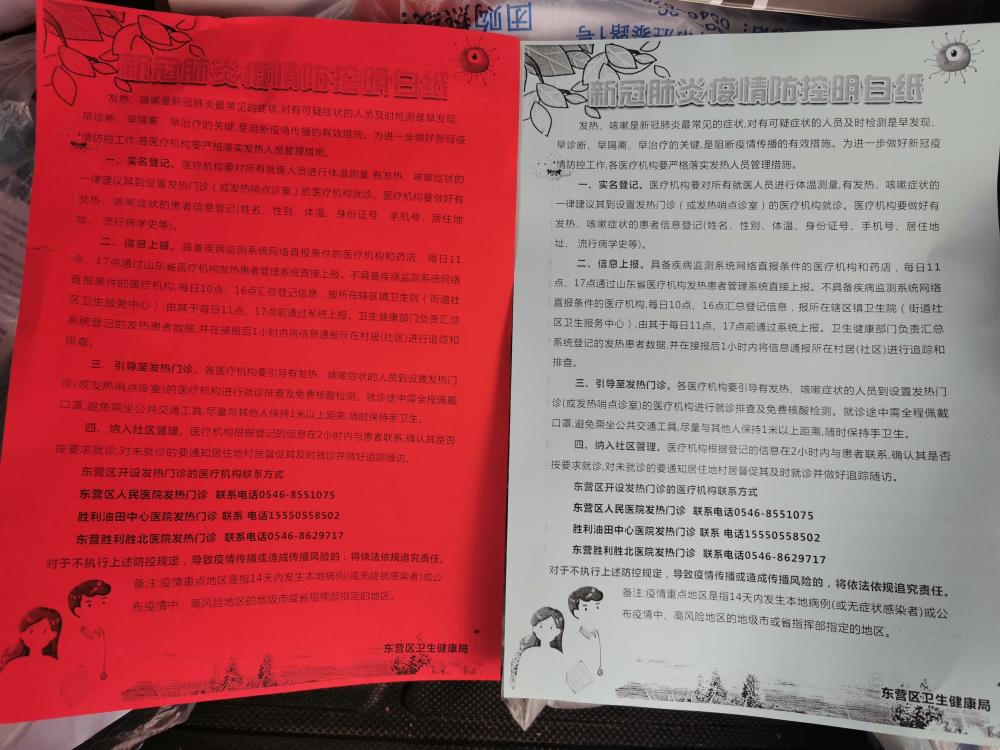 团购热线：
新冠肺炎疫情防控明白纸
发热、咳嗽是新冠肺炎最常见的症状,对有可疑症状的人员及时检测是早发现、
早诊断、早隔离、早治疗的关键,是阻断疫情传播的有效措施。为进一步做好新冠疫
情防控工作,各医疗机构要严格落实发热人员管理措施。
一、实名登记。医疗机构要对所有就医人员进行体温测量,有发热、咳嗽症状的
一律建议其到设置发热门诊（或发热哨点诊室）的医疗机构就诊。医疗机构要做好有
发热、咳嗽症状的患者信息登记(姓名、性别、体温、身份证号、手机号、居住地
址、流行病学史等)。
二、信息上报。具备疾病监测系统网络直报条件的医疗机构和药店，每日11
点、17点通过山东省医疗机构发热患者管理系统直接上报。不具备疾病监测系统网络
直报条件的医疗机构,每日10点、16点汇总登记信息，报所在辖区镇卫生院（街道社
区卫生服务中心）,由其于每日11点、17点前通过系统上报。卫生健康部门负责汇总
系统登记的发热患者数据,并在接报后1小时内将信息通报所在村居(社区)进行追踪和
排查。
三、引导至发热门诊。各医疗机构要引导有发热、咳嗽症状的人员到设置发热门
诊(或发热哨点诊室)的医疗机构进行就诊排查及免费核酸检测。就诊途中需全程佩戴
口罩,避免乘坐公共交通工具,尽量与其他人保持1米以上距离,随时保持手卫生。
四、纳入社区管理。医疗机构根据登记的信息在2小时内与患者联系,确认其是否
按要求就诊,对未就诊的要通知居住地村居督促其及时就诊并做好追踪随访。
东营区开设发热门诊的医疗机构联系方式
东营区人民医院发热门诊 联系电话0546-8551075
胜利油田中心医院发热门诊 联系 电话15550558502
东营胜利胜北医院发热门诊 联系电话0546-8629717
对于不执行上述防控规定，导致疫情传播或造成传播风险的，将依法依规追究责任。
备注:疫情重点地区是指14天内发生本地病例(或无症状感染者)或公
布疫情中、高风险地区的地级市或省指挥部指定的地区。
东营区卫生健康局
新冠肺炎疫情防控明白纸
发热、咳嗽是新冠肺炎最常见的症状,对有可疑症状的人员及时检测是早发现、
早诊断、早隔离、早治疗的关键,是阻断疫情传播的有效措施。为进一步做好新冠疫
情防控工作,各医疗机构要严格落实发热人员管理措施。
一、实名登记。医疗机构要对所有就医人员进行体温测量,有发热、咳嗽症状的
一律建议其到设置发热门诊（或发热哨点诊室）的医疗机构就诊。医疗机构要做好有
发热、咳嗽症状的患者信息登记(姓名、性别、体温、身份证号、手机号、居住地
址、流行病学史等)。
二、信息上报。具备疾病监测系统网络直报条件的医疗机构和药店，每日11
点、17点通过山东省医疗机构发热患者管理系统直接上报。不具备疾病监测系统网络
直报条件的医疗机构,每日10点、16点汇总登记信息，报所在辖区镇卫生院（街道社
区卫生服务中心）,由其于每日11点、17点前通过系统上报。卫生健康部门负责汇总
系统登记的发热患者数据,并在接报后1小时内将信息通报所在村居(社区)进行追踪和
排查。
三、引导至发热门诊。各医疗机构要引导有发热、咳嗽症状的人员到设置发热门
诊(或发热哨点诊室)的医疗机构进行就诊排查及免费核酸检测。就诊途中需全程佩戴
口罩,避免乘坐公共交通工具,尽量与其他人保持1米以上距离,随时保持手卫生。
四、纳入社区管理。医疗机构根据登记的信息在2小时内与患者联系,确认其是否
按要求就诊,对未就诊的要通知居住地村居督促其及时就诊并做好追踪随访。
东营区开设发热门诊的医疗机构联系方式
东营区人民医院发热门诊 联系电话0546-8551075
胜利油田中心医院发热门诊 联系 电话15550558502
东营胜利胜北医院发热门诊 联系电话0546-8629717
对于不执行上述防控规定，导致疫情传播或造成传播风险的，将依法依规追究责任。
备注:疫情重点地区是指14天内发生本地病例(或无症状感染者)或公
布疫情中、高风险地区的地级市或省指挥部指定的地区。
东营区卫生健康局